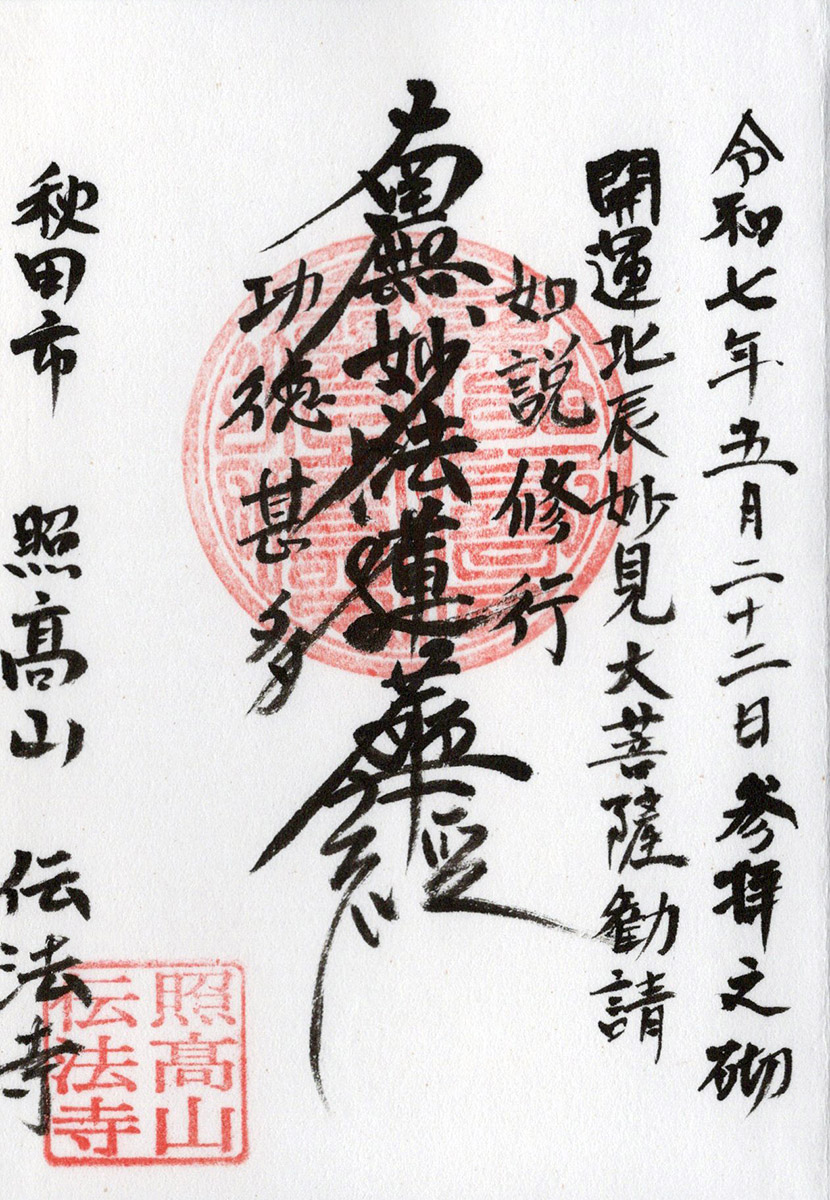 令和七年五月二十二日参拝之砌
開運北辰妙見大菩薩勧請
如説修行
南無妙法蓮華経
功徳甚多
秋田市 照高山 伝法寺
照高山
伝法寺